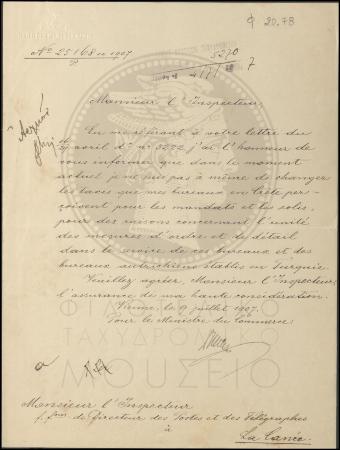 φ 20.78
No 25168 de 1907
5270
7
Monsieur l'Inspecteur,
En me référant à votre lettre du
avril d. n° 3222 j'ai l'honneur de
vous informer que dans le moment
actuel je ne suis pas à même de changer
les taxes que mes bureaux en Crète per-
çoivent pour les mandats et les colis,
pour des raisons concernant l'unité
des mesures d'ordre et de détail
dans le service de ces bureaux et des
bureaux autrichiens établis en Turquie.
Veuillez agréer, Monsieur l'Inspecteur,
l'assurance de ma haute considération.
Vienne, le 9 juillet 1907.
Pour le Ministre du Commerce
ΤΑΧΥΔΡΟΜΙΚΟ
ΜΟΥΣΕΙΟ
Monsieur l'Inspecteur
f. fons de Directeur des Postes et des Télégraphes
à
La Canée.